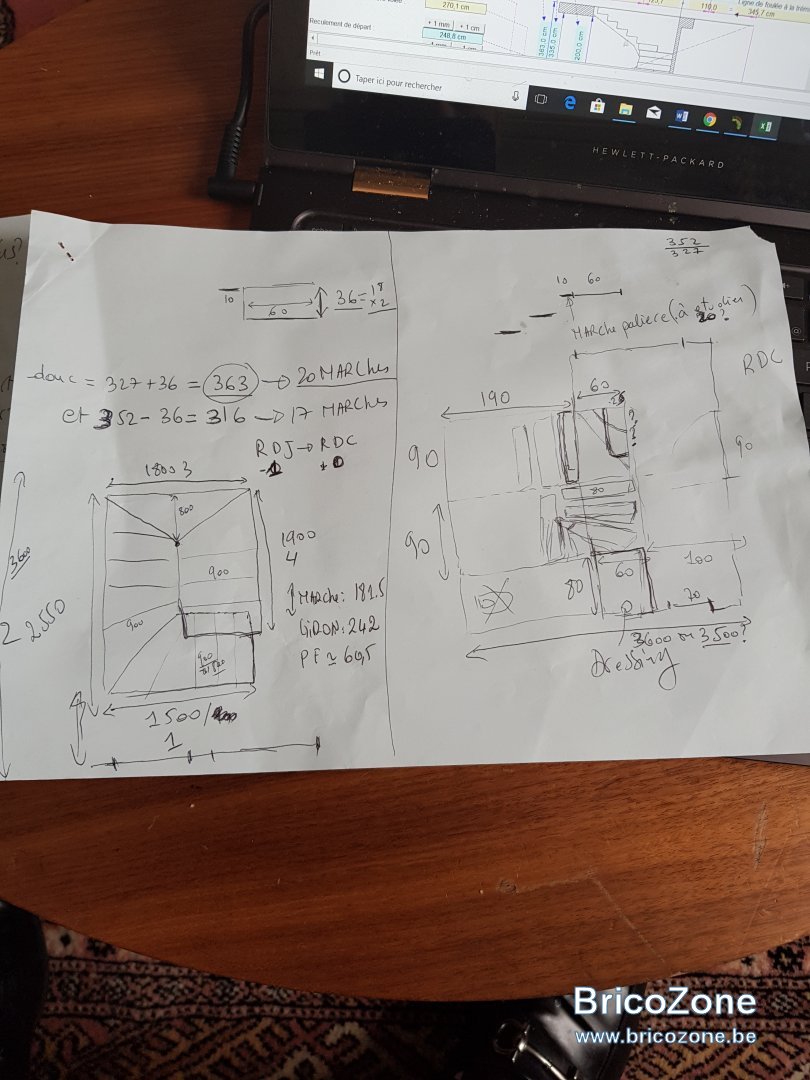 270,1 cm
Ligne de foulée à la trémie
110,0
345,7 cm
Reculement de départ
+ 1 mm
+ 1 cm
248,8 cm
363,0 cm
335,0 cm
200,0 cm
Prêt
Taper ici pour rechercher
HEWLETT-PACKARD
10
60
36 = 18 x 2
donc = 327 + 36 = 363 → 20 MARCHES
et 352 - 36 = 316 → 17 MARCHES
RDJ → RDC
-1 +0
1800 3
800
1900
4
900
900
3600
2550
MARCHE: 181.5
GIRON: 242
PF ≈ 60,5
1500/
1
352
327
10 60
MARCHE palière (à étudier)
20?
RDC
190
60
90
80
90
90
100
80
60
70
3600 ou 3500?
Dressing
BricoZone
www.bricozone.be